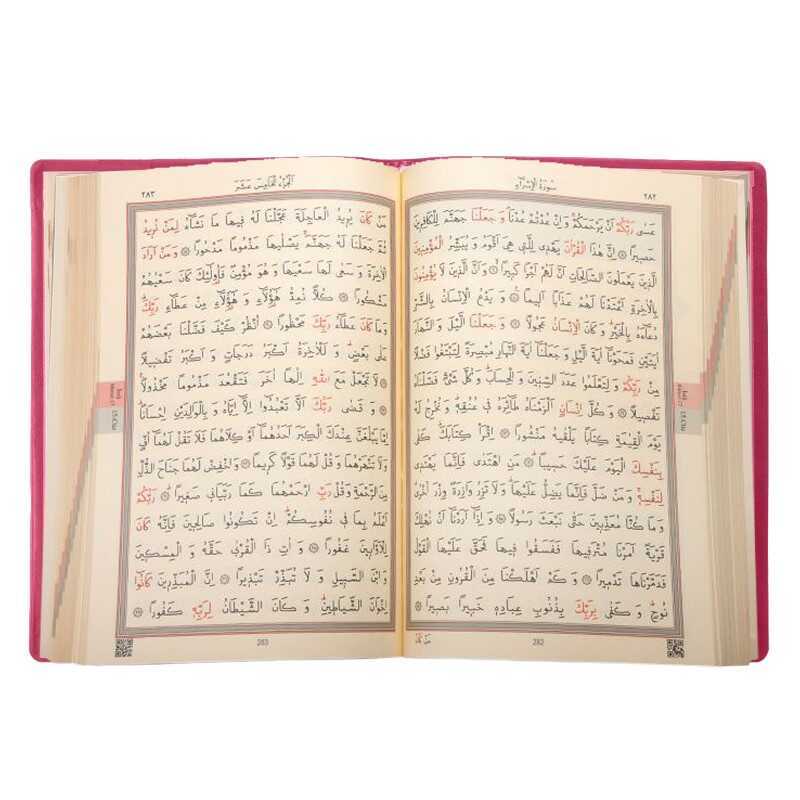 ٢٨٢
سُورَةُ الْإِسْرَاءِ
عَسٰى رَبُّكُمْ اَنْ يَرْحَمَكُمْۚ وَ اِنْ عُدْتُمْ عُدْنَاۢ وَ جَعَلْنَا جَهَنَّمَ لِلْكَافِر۪ينَ
حَص۪يرًا ۞ اِنَّ هٰذَا الْقُرْاٰنَ يَهْد۪ي لِلَّت۪ي هِيَ اَقْوَمُ وَ يُبَشِّرُ الْمُؤْمِن۪ينَ
الَّذ۪ينَ يَعْمَلُونَ الصَّالِحَاتِ اَنَّ لَهُمْ اَجْرًا كَب۪يرًاۙ ۞ وَ اَنَّ الَّذ۪ينَ لَا يُؤْمِنُونَ
بِالْاٰخِرَةِ اَعْتَدْنَا لَهُمْ عَذَابًا اَل۪يمًا۟ ۞ وَ يَدْعُ الْاِنْسَانُ بِالشَّرِّ
دُعَٓاءَهُ بِالْخَيْرِۜ وَ كَانَ الْاِنْسَانُ عَجُولًا ۞ وَ جَعَلْنَا الَّيْلَ وَ النَّهَارَ
اٰيَتَيْنِ فَمَحَوْنَٓا اٰيَةَ الَّيْلِ وَ جَعَلْنَٓا اٰيَةَ النَّهَارِ مُبْصِرَةً لِتَبْتَغُوا فَضْلًا
مِنْ رَبِّكُمْ وَ لِتَعْلَمُوا عَدَدَ السِّن۪ينَ وَ الْحِسَابَۜ وَ كُلَّ شَيْءٍ فَصَّلْنَاهُ
تَفْص۪يلًا ۞ وَ كُلَّ اِنْسَانٍ اَلْزَمْنَاهُ طَٓائِرَهُ ف۪ي عُنُقِه۪ۜ وَ نُخْرِجُ لَهُ
يَوْمَ الْقِيٰمَةِ كِتَابًا يَلْقٰيهُ مَنْشُورًا ۞ اِقْرَأْ كِتَابَكَۜ كَفٰى
بِنَفْسِكَ الْيَوْمَ عَلَيْكَ حَس۪يبًاۜ ۞ مَنِ اهْتَدٰى فَاِنَّمَا يَهْتَد۪ي
لِنَفْسِه۪ۚ وَ مَنْ ضَلَّ فَاِنَّمَا يَضِلُّ عَلَيْهَاۜ وَ لَا تَزِرُ وَازِرَةٌ وِزْرَ اُخْرٰىۜ
وَ مَا كُنَّا مُعَذِّب۪ينَ حَتّٰى نَبْعَثَ رَسُولًا ۞ وَ اِذَٓا اَرَدْنَٓا اَنْ نُهْلِكَ
قَرْيَةً اَمَرْنَا مُتْرَف۪يهَا فَفَسَقُوا ف۪يهَا فَحَقَّ عَلَيْهَا الْقَوْلُ
فَدَمَّرْنَاهَا تَدْم۪يرًا ۞ وَ كَمْ اَهْلَكْنَا مِنَ الْقُرُونِ مِنْ بَعْدِ
نُوحٍۜ وَ كَفٰى بِرَبِّكَ بِذُنُوبِ عِبَادِه۪ خَب۪يرًا بَص۪يرًا ۞
مَنْ كَانَ
282
اَلْجُزْءُ الْخَامِسَ عَشَرَ
٢٨٣
مَنْ كَانَ يُر۪يدُ الْعَاجِلَةَ عَجَّلْنَا لَهُ ف۪يهَا مَا نَشَٓاءُ لِمَنْ نُر۪يدُ
ثُمَّ جَعَلْنَا لَهُ جَهَنَّمَۚ يَصْلٰيهَا مَذْمُومًا مَدْحُورًا ۞ وَ مَنْ اَرَادَ
الْاٰخِرَةَ وَ سَعٰى لَهَا سَعْيَهَا وَ هُوَ مُؤْمِنٌ فَاُو۬لٰٓئِكَ كَانَ سَعْيُهُمْ
مَشْكُورًا ۞ كُلًّا نُمِدُّ هٰٓؤُ۬لَٓاءِ وَ هٰٓؤُ۬لَٓاءِ مِنْ عَطَٓاءِ رَبِّكَۜ
وَ مَا كَانَ عَطَٓاءُ رَبِّكَ مَحْظُورًا ۞ اُنْظُرْ كَيْفَ فَضَّلْنَا بَعْضَهُمْ
عَلٰى بَعْضٍۜ وَ لَلْاٰخِرَةُ اَكْبَرُ دَرَجَاتٍ وَ اَكْبَرُ تَفْض۪يلًا
۞ لَا تَجْعَلْ مَعَ اللّٰهِ اِلٰهًا اٰخَرَ فَتَقْعُدَ مَذْمُومًا مَخْذُولًا۟
۞ وَ قَضٰى رَبُّكَ اَلَّا تَعْبُدُٓوا اِلَّٓا اِيَّاهُ وَ بِالْوَالِدَيْنِ اِحْسَانًاۜ
اِمَّا يَبْلُغَنَّ عِنْدَكَ الْكِبَرَ اَحَدُهُمَٓا اَوْ كِلَاهُمَا فَلَا تَقُلْ لَهُمَٓا اُفٍّ
وَ لَا تَنْهَرْهُمَا وَ قُلْ لَهُمَا قَوْلًا كَر۪يمًا ۞ وَ اخْفِضْ لَهُمَا جَنَاحَ الذُّلِّ
مِنَ الرَّحْمَةِ وَ قُلْ رَبِّ ارْحَمْهُمَا كَمَا رَبَّيَان۪ي صَغ۪يرًاۜ ۞ رَبُّكُمْ
اَعْلَمُ بِمَا ف۪ي نُفُوسِكُمْۜ اِنْ تَكُونُوا صَالِح۪ينَ فَاِنَّهُ كَانَ
لِلْاَوَّاب۪ينَ غَفُورًا ۞ وَ اٰتِ ذَا الْقُرْبٰى حَقَّهُ وَ الْمِسْك۪ينَ
وَ ابْنَ السَّب۪يلِ وَ لَا تُبَذِّرْ تَبْذ۪يرًا ۞ اِنَّ الْمُبَذِّر۪ينَ كَانُٓوا
اِخْوَانَ الشَّيَاط۪ينِۜ وَ كَانَ الشَّيْطَانُ لِرَبِّه۪ كَفُورًا ۞
283